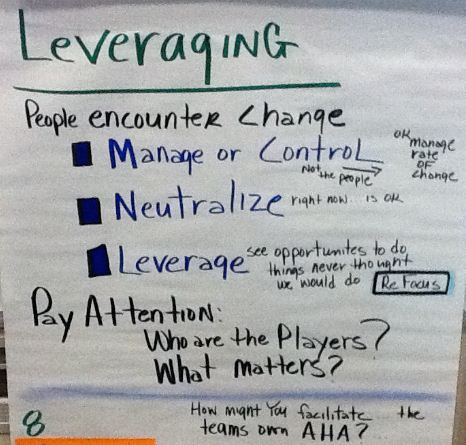 Leveraging
People encounter change
Manage or Control
Not the people
OK manage
rate
of
change
Neutralize right now... is OK
Leverage see opportunites to do
things never thought
we would do Refocus
Pay Attention:
Who are the Players?
What matters?
8
How might You facilitate... the
teams own AHA?